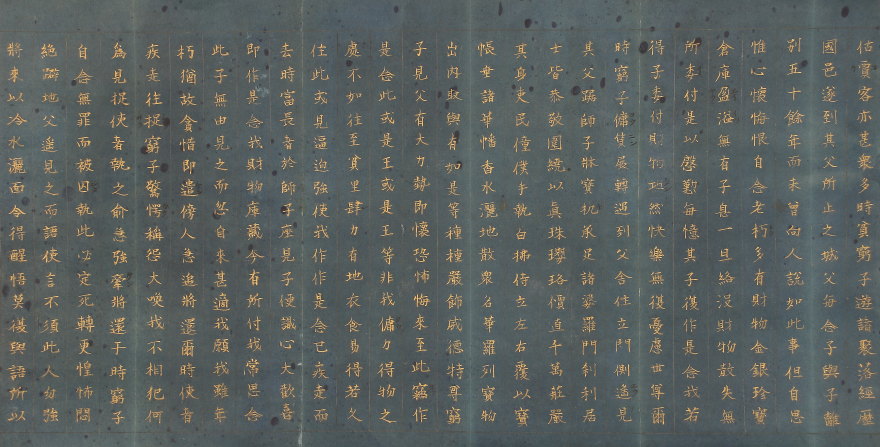 估賈客亦甚眾多時貧窮子遊諸聚落經歷
國邑遂到其父所止之城父每念子與子離
別五十餘年而未曾向人說如此事但自思
惟心懷悔恨自念老朽多有財物金銀珍寶
倉庫盈溢無有子息一旦終沒財物散失無
所委付是以慇懃每憶其子復作是念我若
得子委付財物坦然快樂無復憂慮世尊爾
時窮子傭賃展轉遇到父舍住立門側遙見
其父踞師子牀寶机承足諸婆羅門剎利居
士皆恭敬圍繞以真珠瓔珞價直千萬莊嚴
其身吏民僮僕手執白拂侍立左右覆以寶
帳垂諸華幡香水灑地散眾名華羅列寶物
出內取與有如是等種種嚴飾威德特尊窮
子見父有大力勢即懷恐怖悔來至此竊作
是念此或是王或是王等非我傭力得物之
處不如往至貧里肆力有地衣食易得若久
住此或見逼迫強使我作作是念已疾走而
去時富長者於師子座見子便識心大歡喜
即作是念我財物庫藏今有所付我常思念
此子無由見之而忽自來甚適我願我雖年
朽猶故貪惜即遣傍人急追將還爾時使者
疾走往捉窮子驚愕稱怨大喚我不相犯何
為見捉使者執之愈急強牽將還于時窮子
自念無罪而被囚執此必定死轉更惶怖悶
絕躃地父遙見之而語使言不須此人勿強
將來以冷水灑面令得醒悟莫復與語所以